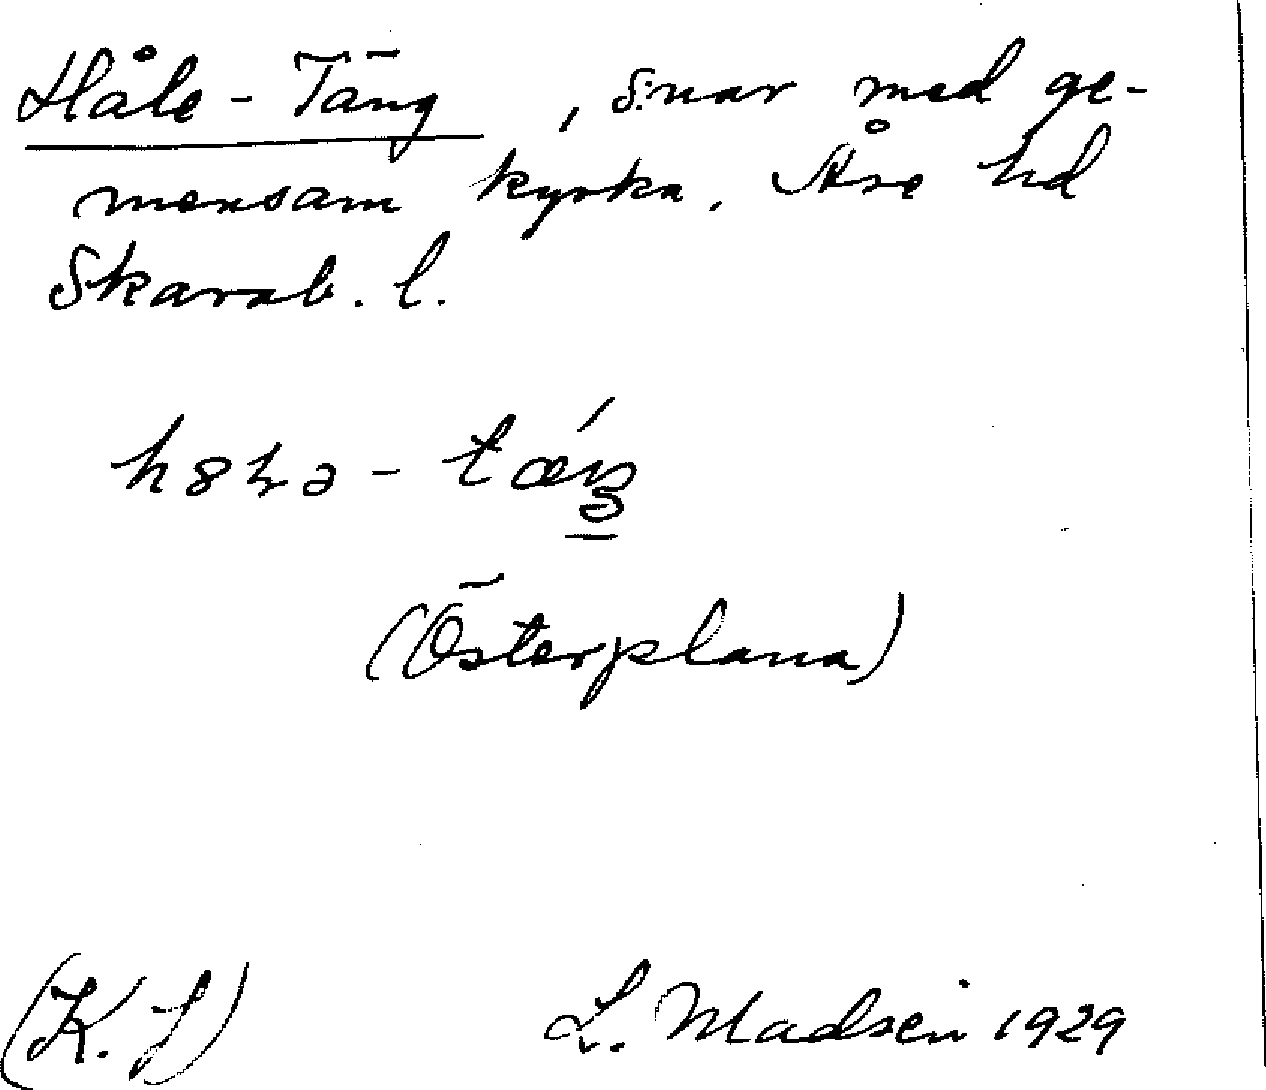 Håle-Täng, s:nar med ge-
mensam kyrka, Åse hd
Skarab. l.
(Österplana)
(K. J) L. Madsen 1929